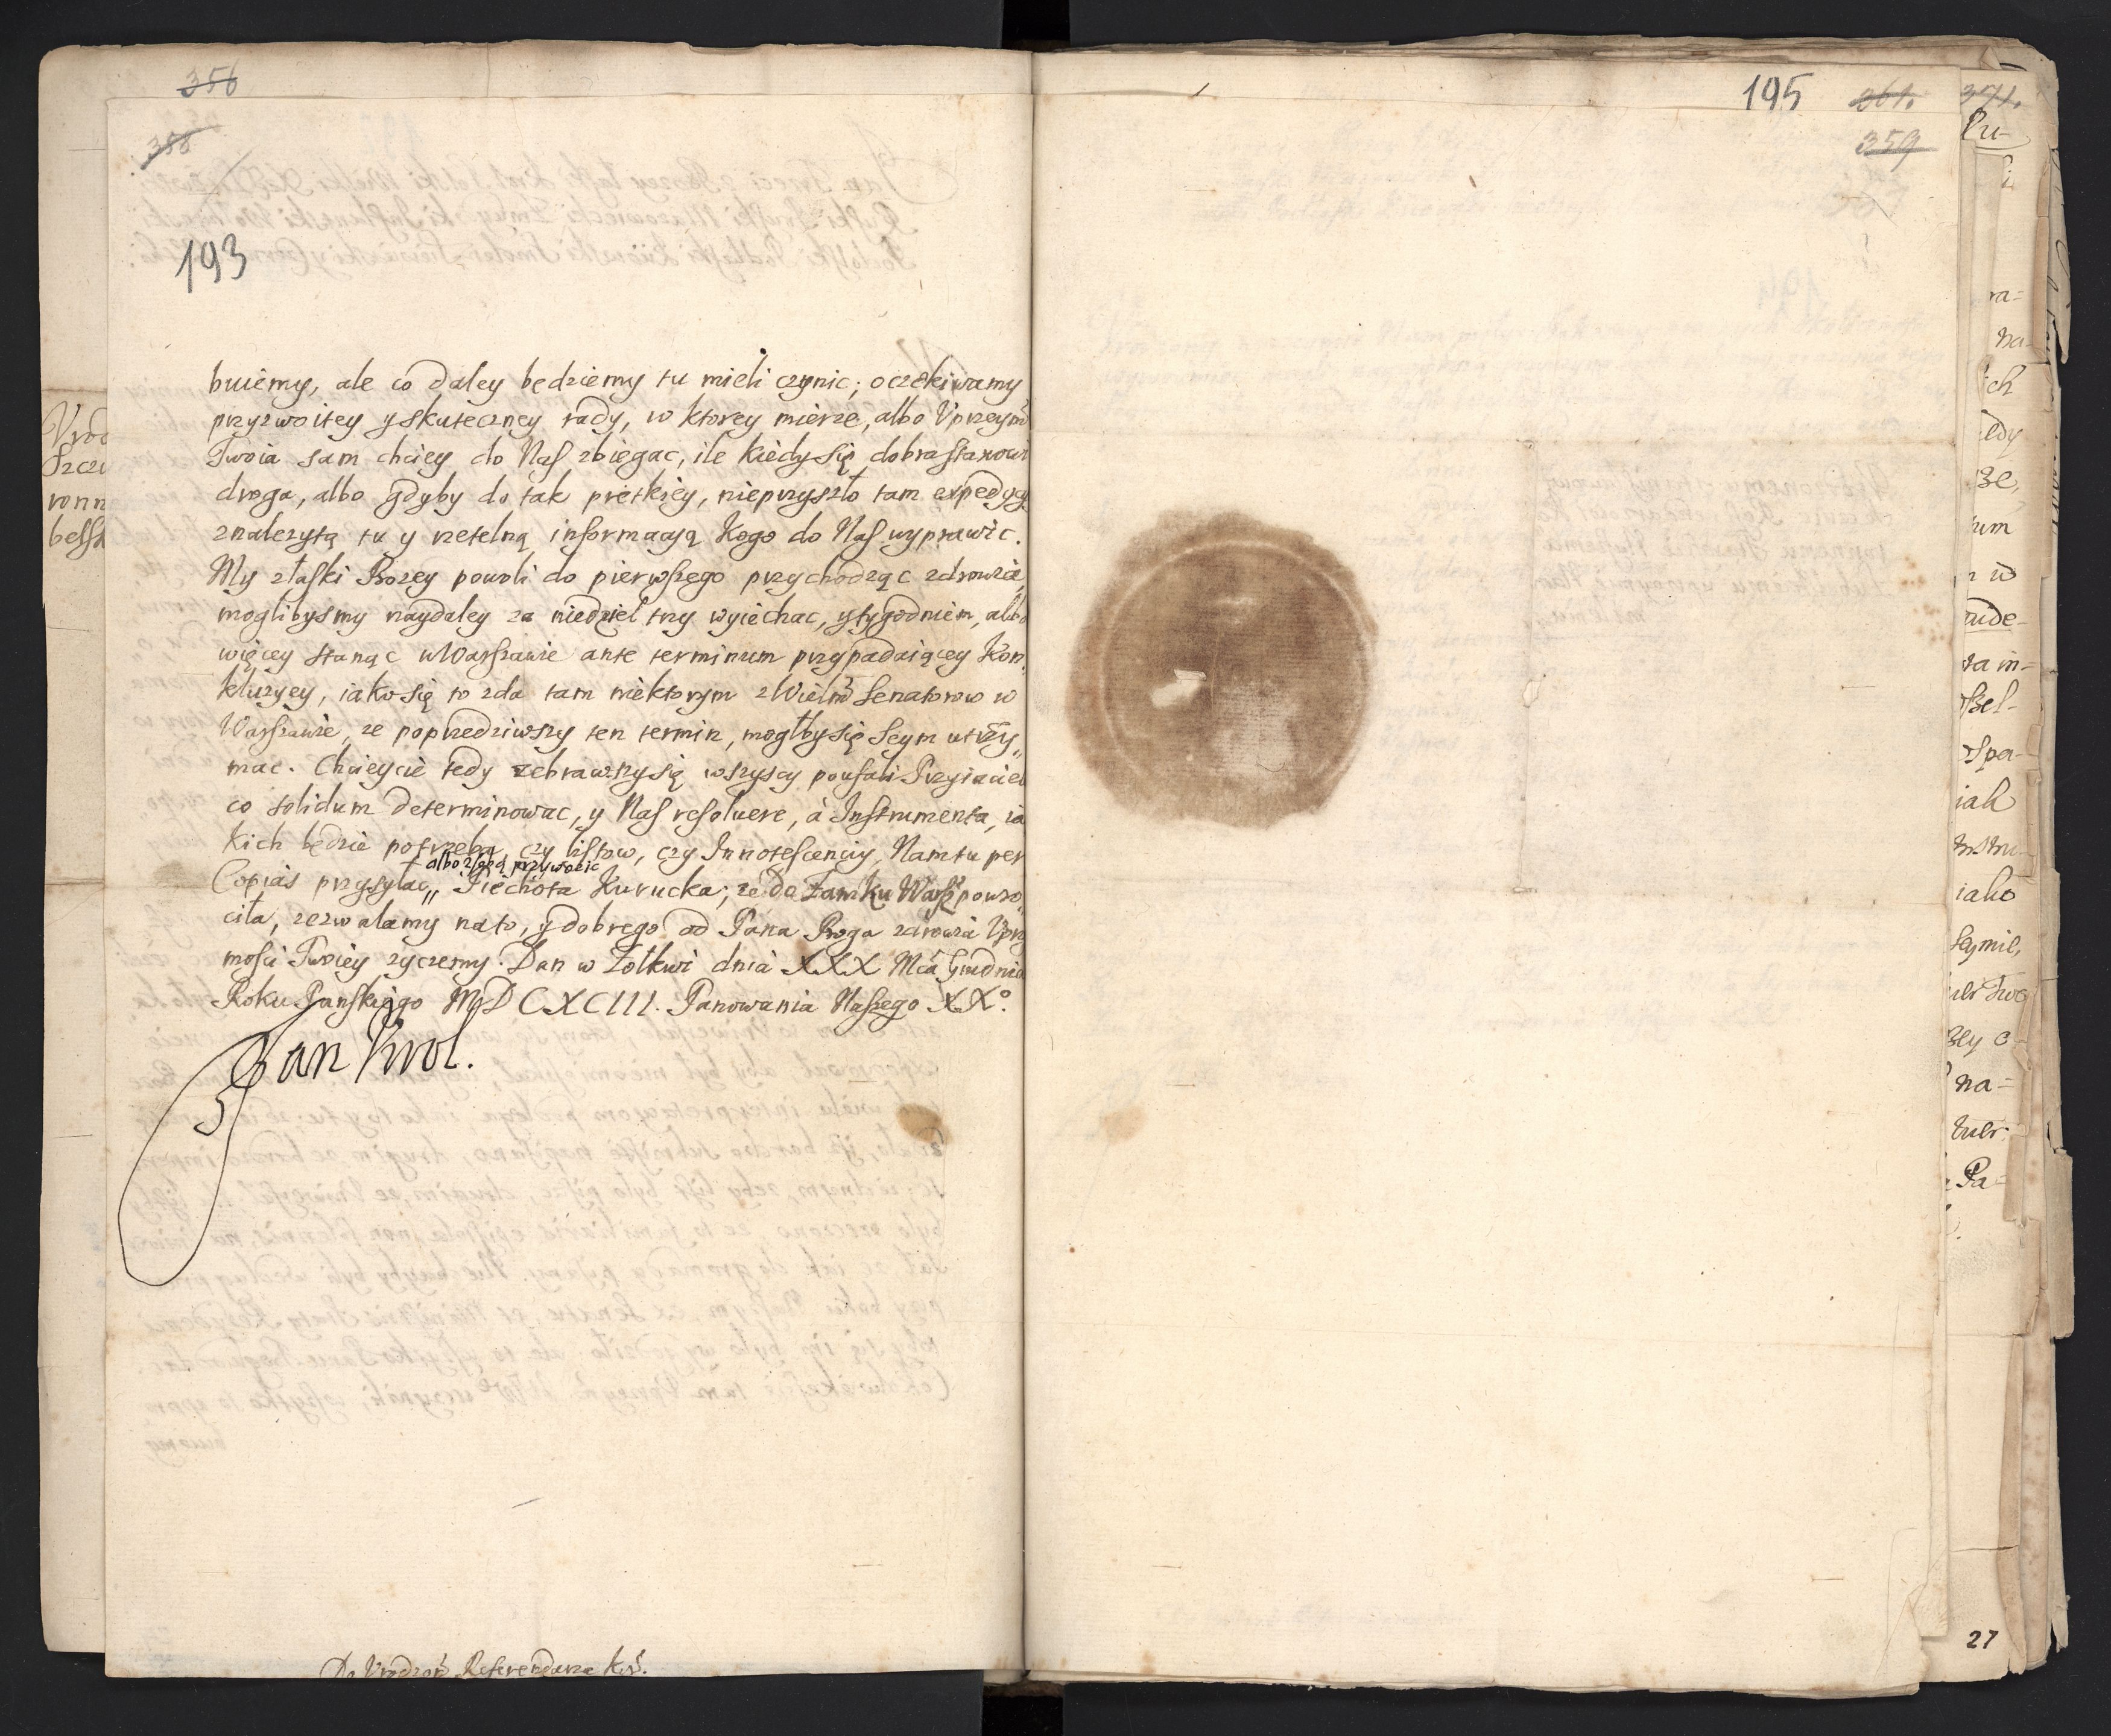 356
358
193
buiemy, ale co daley będziemy tu mieli czynic; oczekiwamy
przyzwoitey y skuteczney rady, w ktorey mierze, albo Uprzeym
Twoia sam chciey do Nas zbiegac, ile kiedy się dobra stanowi
droga, albo gdyby do tak prętkiey, nieprzyszło tam expedycy
znależytą tu y rzetelną informacyą Kogo do Nas wyprawic.
My złaski Bozey powoli do pierwszego przychodząc zdrowia,
moglibysmy naydaley za niedziel trzy wyiechac, y tygodniem, albo
więcey stanąc w Warszawie ante terminum przypadaiącey Kon,,
kluzyey, iako się to zda tam niektorym z Wielm Senatorow w
Warszawie, ze poprzedziwszy ten termin, mogłby się Seym utrzy,,
mac. Chcieycie tedy zebrawszy się wszyscy poufali Przyiaciel
co solidum determinowac, y Nas resoluere, à Instrumenta, ia
kich będzie potrzeba, czy listow, czy Innotescencyi, Nam tu per
albo zsobą przywozic
Copias przysyłac,, Piechota Kurucka; ze do Zamku Warsz powro,,
ciła, zezwalamy na to, y dobrego od Pana Boga zdrowia Uprz
mosci Twoiey zyczemy. Dan w Zolkwi dnia XXX Mca Grudnia
Roku Panskiego MDCXCIII. Panowania Naszego XX°.
Jan Krol.
Do Urodzon Referendarza Kor.
Uro
Szcz
ronn
belsk
195
361.
359
371.
Pu-
ra=
na-
ich
edy
sze,
tum
n w
aide-
ta in-
iak
iako
Seymie,
na=
Pa=
27